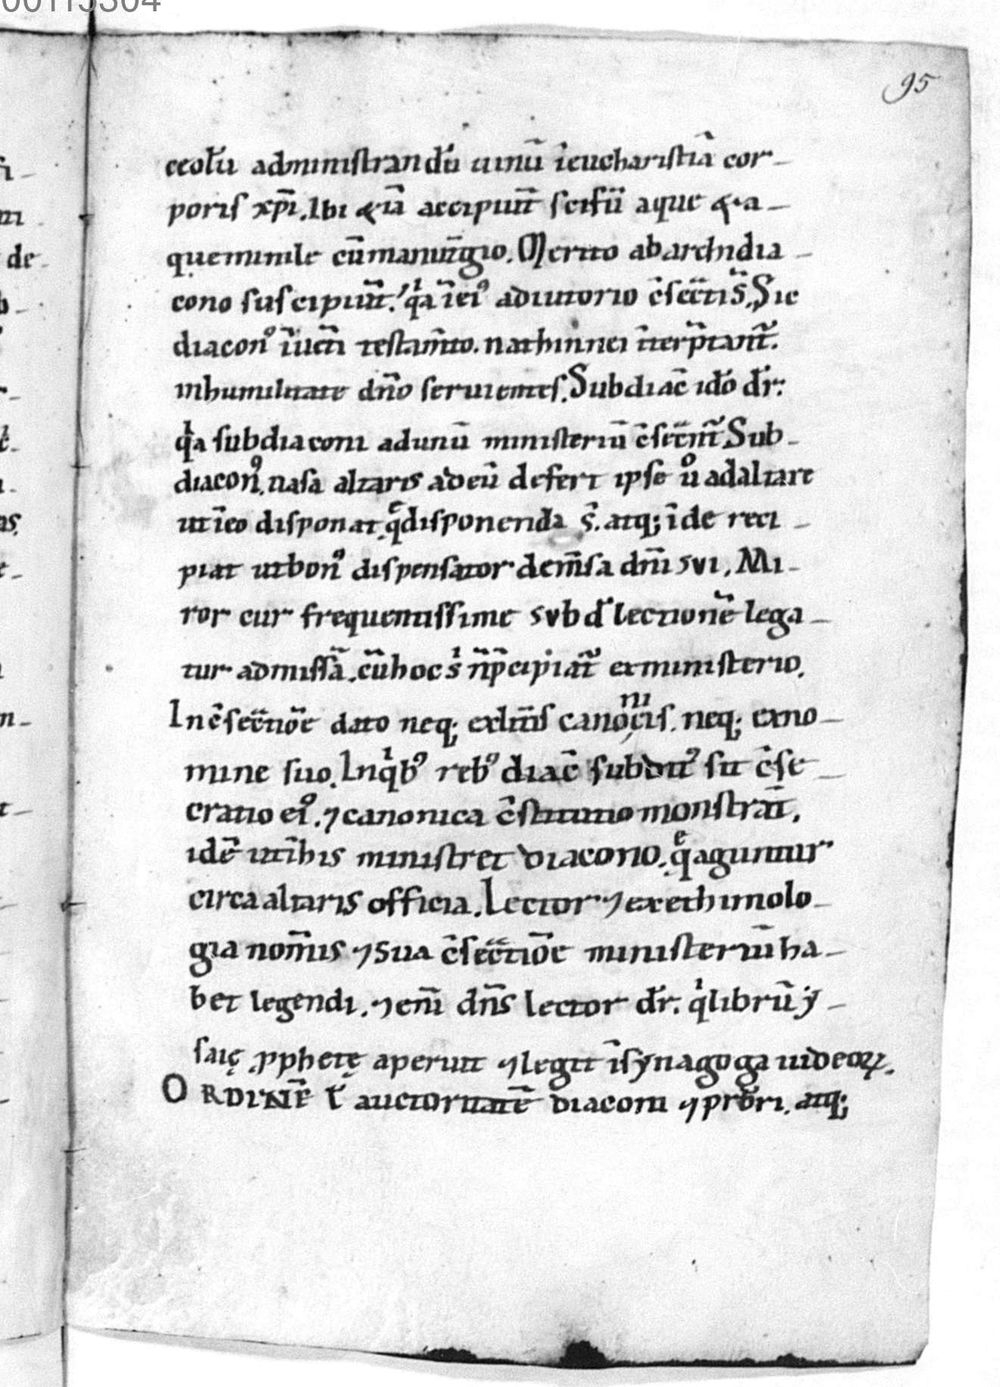 95
ceolū administrandū uinū ī eucharistiā cor-
poris xp̄i. Ibi & iā accipiunt̄ scifū aque & a-
quemmile cū manuṫgio. Merito ab archidia-
cono suscipiunt̄. q̇a ī ei᾽ adiutorio c̄secrtis. Sic
diacon᾽ ī uet̄i testam̄to. nathinnei īterp̄tant̄.
inhumilitate dn̄o seruientes. Subdiac̄ idō dr̄:
q̇a subdiaconi ad unū ministeriū c̄secrnt̄ Sub-
diacon᾽. uasa altaris ad eū defert ipse u̇ ad altare
ut ī eo disponat. q̄ disponenda s̄. atq; īde reci-
piat ut bon᾽ dispensator de m̄sa dn̄i sui. Mi-
ror cur frequentissime subd̄ lectionē lega-
tur ad missā. cū hoc s̄ n̄ p̄cipiat̄ ex ministerio.
In c̄secrtōe dato neq; ex lītt̄s canonicis. neq; ex no-
mine suo. In q̇b᾽ reb᾽ diac̄ subdit᾽ sit c̄se-
cratio ei᾽. ⁊ canonica c̄stitutio monstrat̄.
idē ut ī his ministret diacono. q̄ aguntur
circa altaris officia. Lector ⁊ ex ethimolo-
gia nom̄is ⁊ sua c̄secrtiōe ministeriū ha-
bet legendi. ⁊ em̄ dn̄s lector dr̄. q̇ librū y-
saię pphetę aperuit ⁊ legit ī synagoga iudeoꝝ.
ORDINĒ ł auctoritatē diaconi ⁊ prb̄ri. atq;